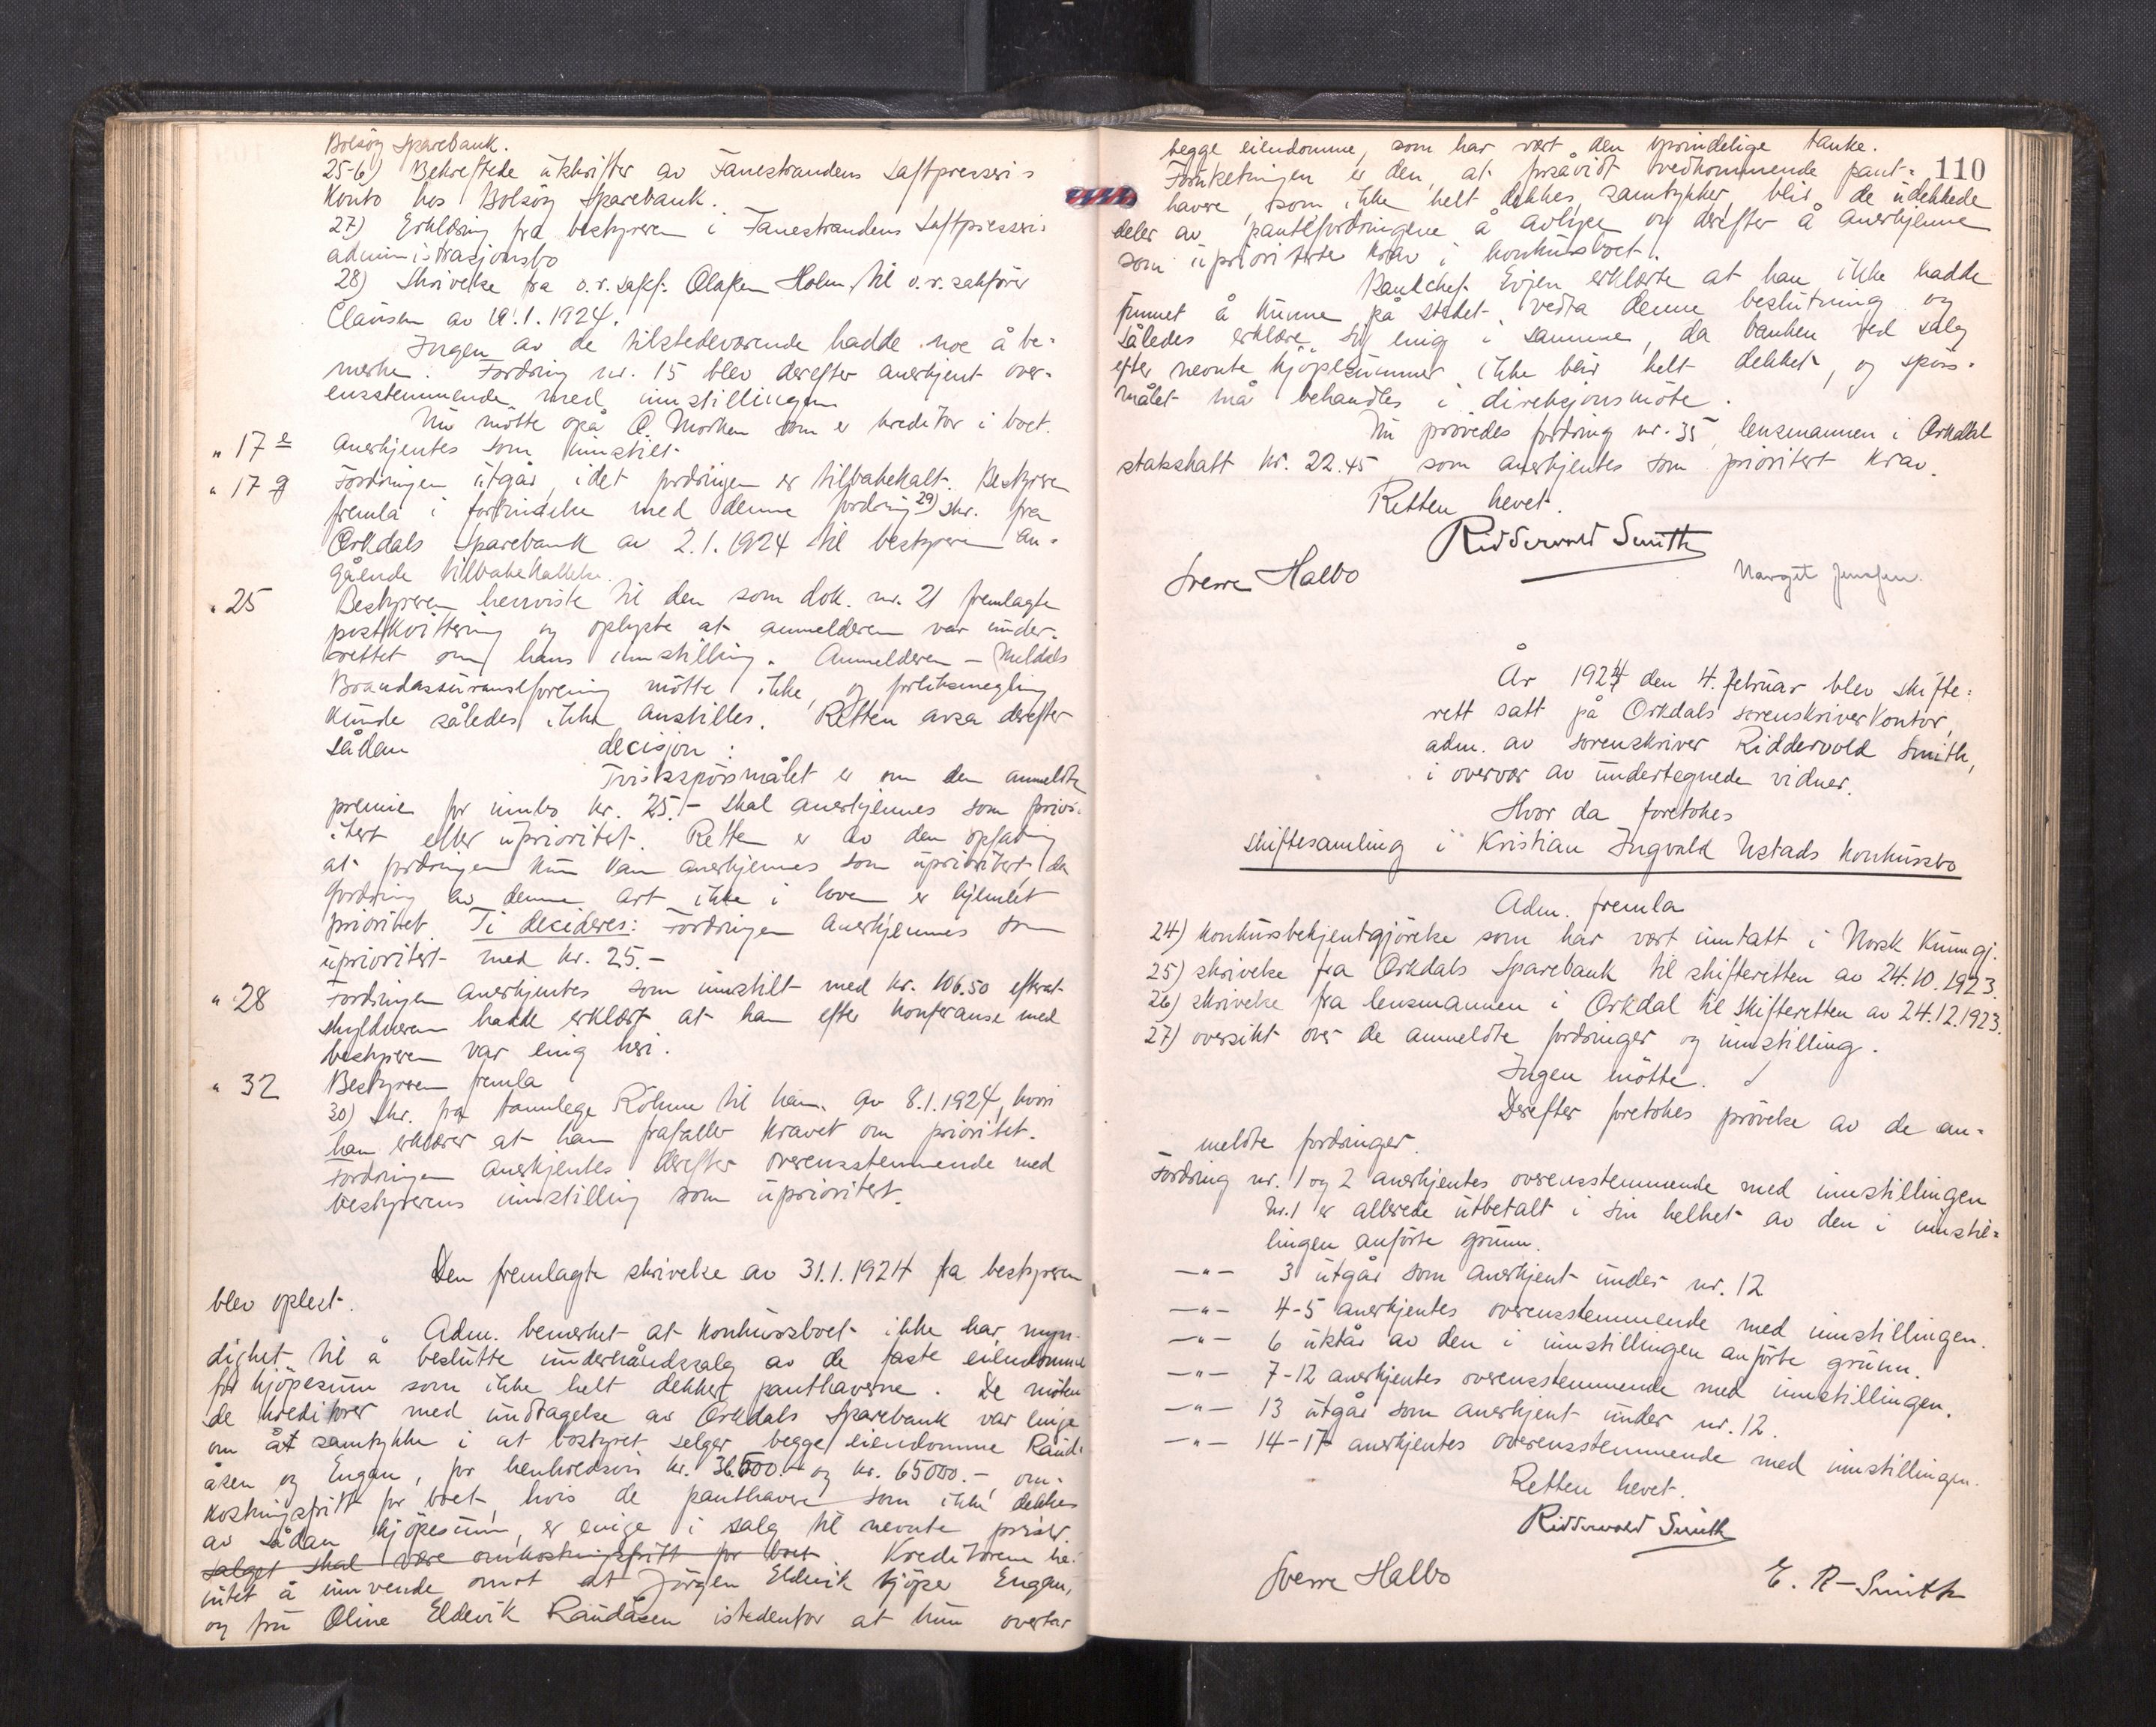 Bolsöy Sparebank.
25-6) Bekreftede utskrifter av Fanestrandens Saftpresseri s
Konto hos Bolsöy Sparebank.
27) Erklæring fra bestyreren i Fanestrandens Saftpresseris
administrasjonsbo
28) Skrivelse fra o.r.sakf. Olafsen Holm til o.r. sakförer
Clausen av 19.1.1924.
Ingen av de tilstedeværende hadde noe å be-
merke. Fordring nr. 15 blev derefter anerkjent over-
ensstemmende med innstillingen
Nu mötte også O. Morken som er kreditor i boet.
" 17 e Anerkjentes som innstilt.
" 17 g Fordringen utgår, idet fordringen er tilbakekalt. Bestyreren
fremla i forbindelse med denne fordring 29) skr. fra
Orkdals Sparebank av 2.1.1924 til bestyreren an-
gående tilbakekallelse.
" 25 Bestyreren henviste til den som dok. nr. 21 fremlagte
postkvittering og oplyste at anmelderen var under-
rettet om hans innstilling. Anmelderen - Meldals
Brandassuranseforening mötte ikke, og forliksmegling
kunde således ikke anstilles. Retten avsa derefter
sådan decisjon:
Tvistsspörsmålet er om den anmeldte
premie for innbo kr. 25.- skal anerkjennes som prior-
itert eller uprioritert. Retten er av den opfatning
at fordringen kun kan anerkjennes som uprioritert, da
fordring av denne art ikke i loven er hjemlet
prioritet. Ti decideres: Fordringen anerkjennes som
uprioritert med kr. 25.-
" 28 Fordringen anerkjentes som innstilt med kr. 106.50 efterat
skyldneren hadde erklært at han efter konferanse med
bestyreren var enig heri.
" 32 Bestyreren fremla
30) Skr. fra tannlege Röhme til ham av 8.1.1924, hvori
han erklærer at han frafaller kravet om prioritet.
Fordringen anerkjentes derefter overensstemmende med
bestyrerens innstilling som uprioritert.
Den fremlagte skrivelse av 31.1.1924 fra bestyreren
blev oplest.
Adm. bemerket at konkursboet ikke har myn-
dighet til å beslutte underhåndssalg av de faste eiendomme
for kjöpesum som ikke helt dekker panthaverne. De möten
de kreditorer med undtagelse av Orkdals Sparebank var enige
om å samtykke i at bostyret selger begge eiendomme Raud-
åsen og Engan, for henholdsvis kr. 36500.- og kr. 65000.-, om-
kostningsfritt for boet, hvis de panthavere som ikke dekkes
av sådan kjöpesum, er enige i salg til nevnte priser.
salget skal være omkostningsfritt for boet. Kreditorene ha-
intet å innvende imot at Jörgen Eldevik kjöper Engan,
og fru Oline Eldevik Raudåsen istedenfor at hun overtar
110
begge eiendomme, som har vært den oprindelige tanke.
Forutsetningen er den, at forsåvidt vedkommende pant-
havere, som ikke helt dekkes, samtykker, blir de udekkede
deler av pantefordringene å avlyse og derefter å anerkjenne
som uprioriterte krav i konkursboet.
Bankchef Evjen erklærte at han ikke hadde
funnet å kunne på stedet vedta denne beslutning og
således erklære sig enig i samme, da banken ved salg
efter nevnte kjöpesummer ikke blir helt dekket, og spörs-
målet må behandles i direksjonsmöte.
Nu prövedes fordring nr. 35, lensmannen i Orkdal
statsskatt kr. 22.45 som anerkjentes som prioritert krav.
Retten hevet.
Ridderwold Smith
Sverre Halbo
Margit Jenssen.
År 1924 den 4. februar blev skifte-
rett satt på Orkdals sorenskriverkontor,
adm. av sorenskriver Riddervold Smith,
i overvær av undertegnede vidner.
Hvor da foretokes
skiftesamling i Kristian Ingvald Ustads konkursbo
Adm. fremla
24) konkursbekjentgjörelse som har vært inntatt i Norsk Kunngj.
25) skrivelse fra Orkdals Sparebank til skifteretten av 24.10.1923.
26) skrivelse fra lensmannen i Orkdal til skifteretten av 24.12.1923.
27) oversikt over de anmeldte fordringer og innstilling.
Ingen mötte.
Derefter foretokes prövelse av de an-
meldte fordringer.
Fordring nr. 1 og 2 anerkjentes overensstemmende med innstillingen
Nr. 1 er allerede utbetalt i sin helhet av den i innstil-
lingen anförte grunn.
—"— 3 utgår som anerkjent under nr. 12
—"— 4-5 anerkjentes overensstemmende med innstillingen.
—"— 6 utstår av den i innstillingen anförte grunn.
—"— 7-12 anerkjentes overensstemmende med innstillingen.
—"— 13 utgår som anerkjent under nr. 12.
—"— 14-17 anerkjentes overensstemmende med innstillingen.
Retten hevet.
Ridderwold Smith
Sverre Halbo
E. R-Smith